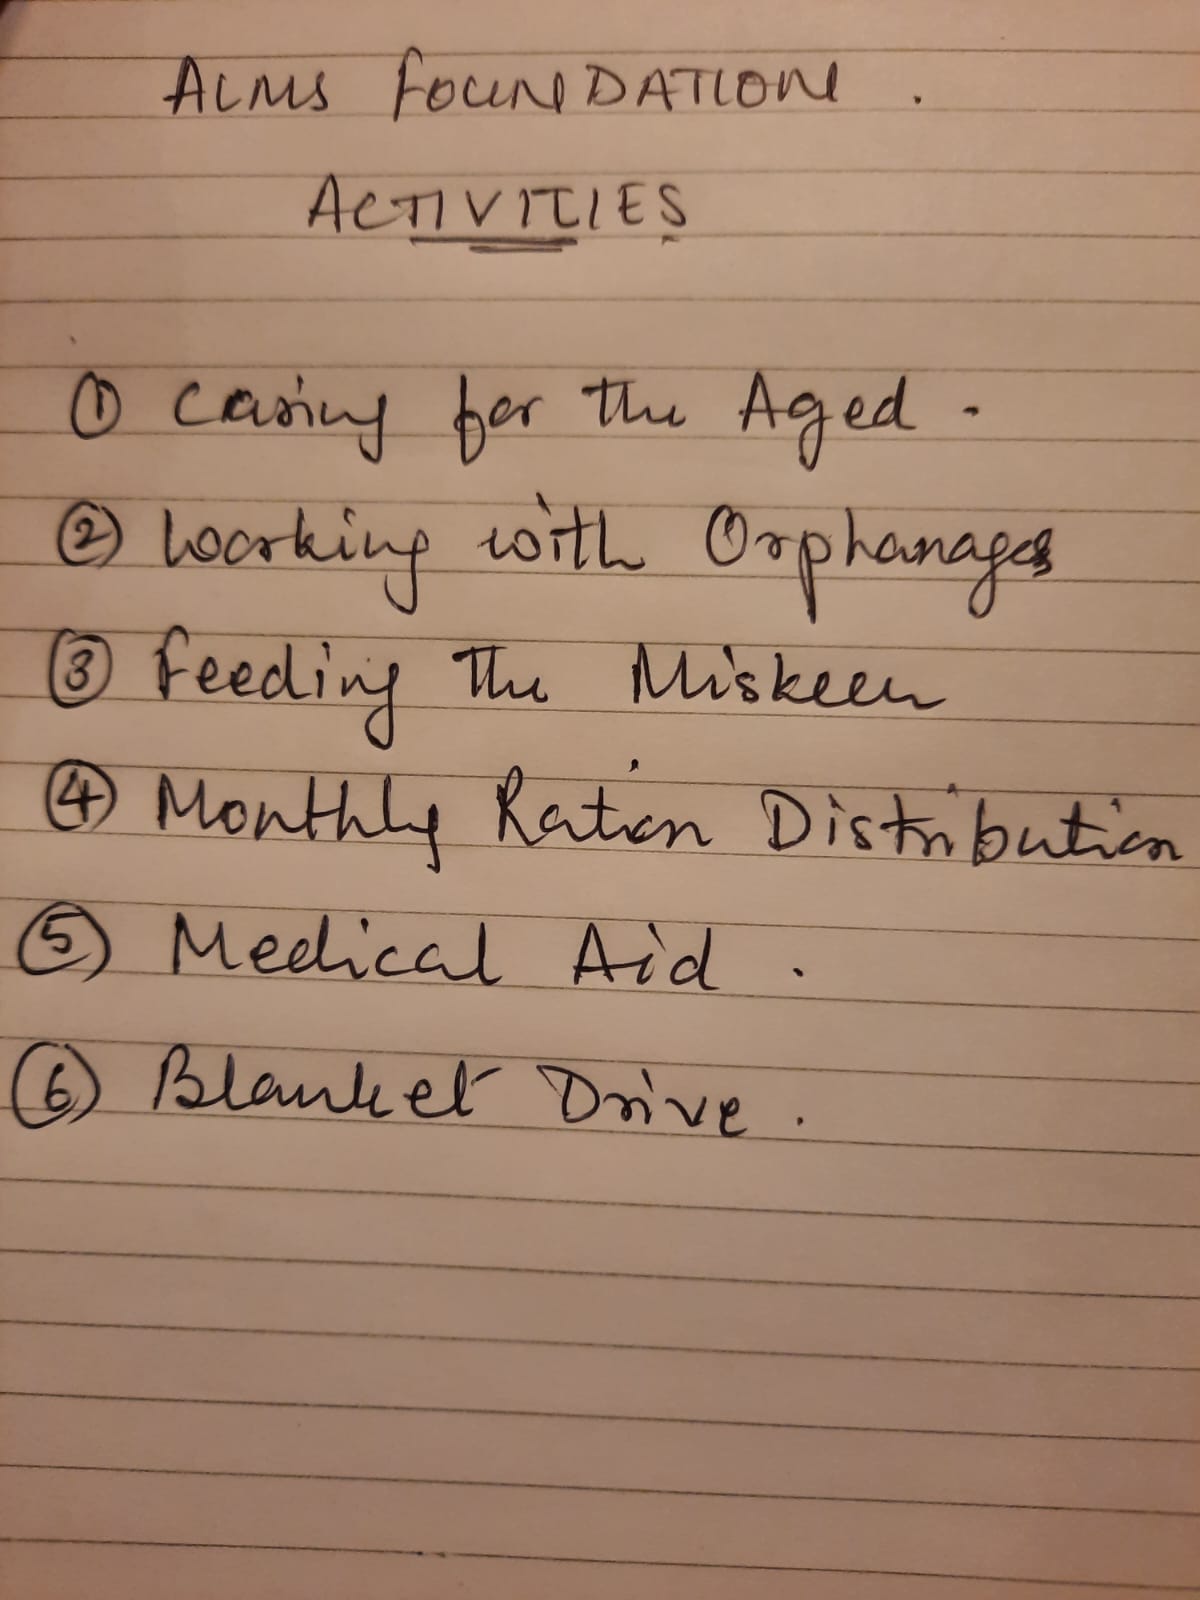 ALMS FOUNDATION.
ACTIVITIES
① Caring for the Aged.
② Working with Orphanages
③ Feeding The Miskeen
④ Monthly Ration Distribution
⑤ Medical Aid.
⑥ Blanket Drive.